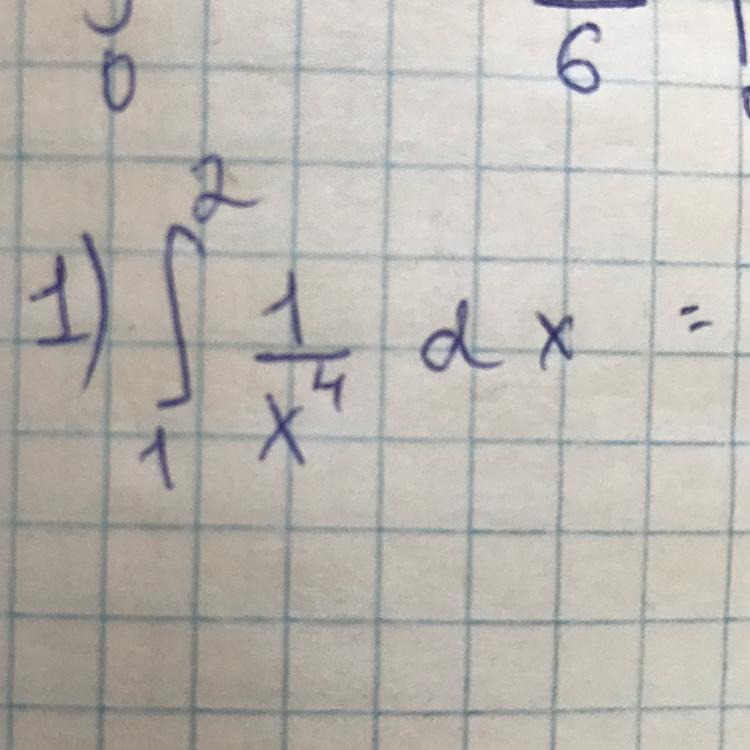 0 6
1) ∫₁² 1/x⁴ dx =